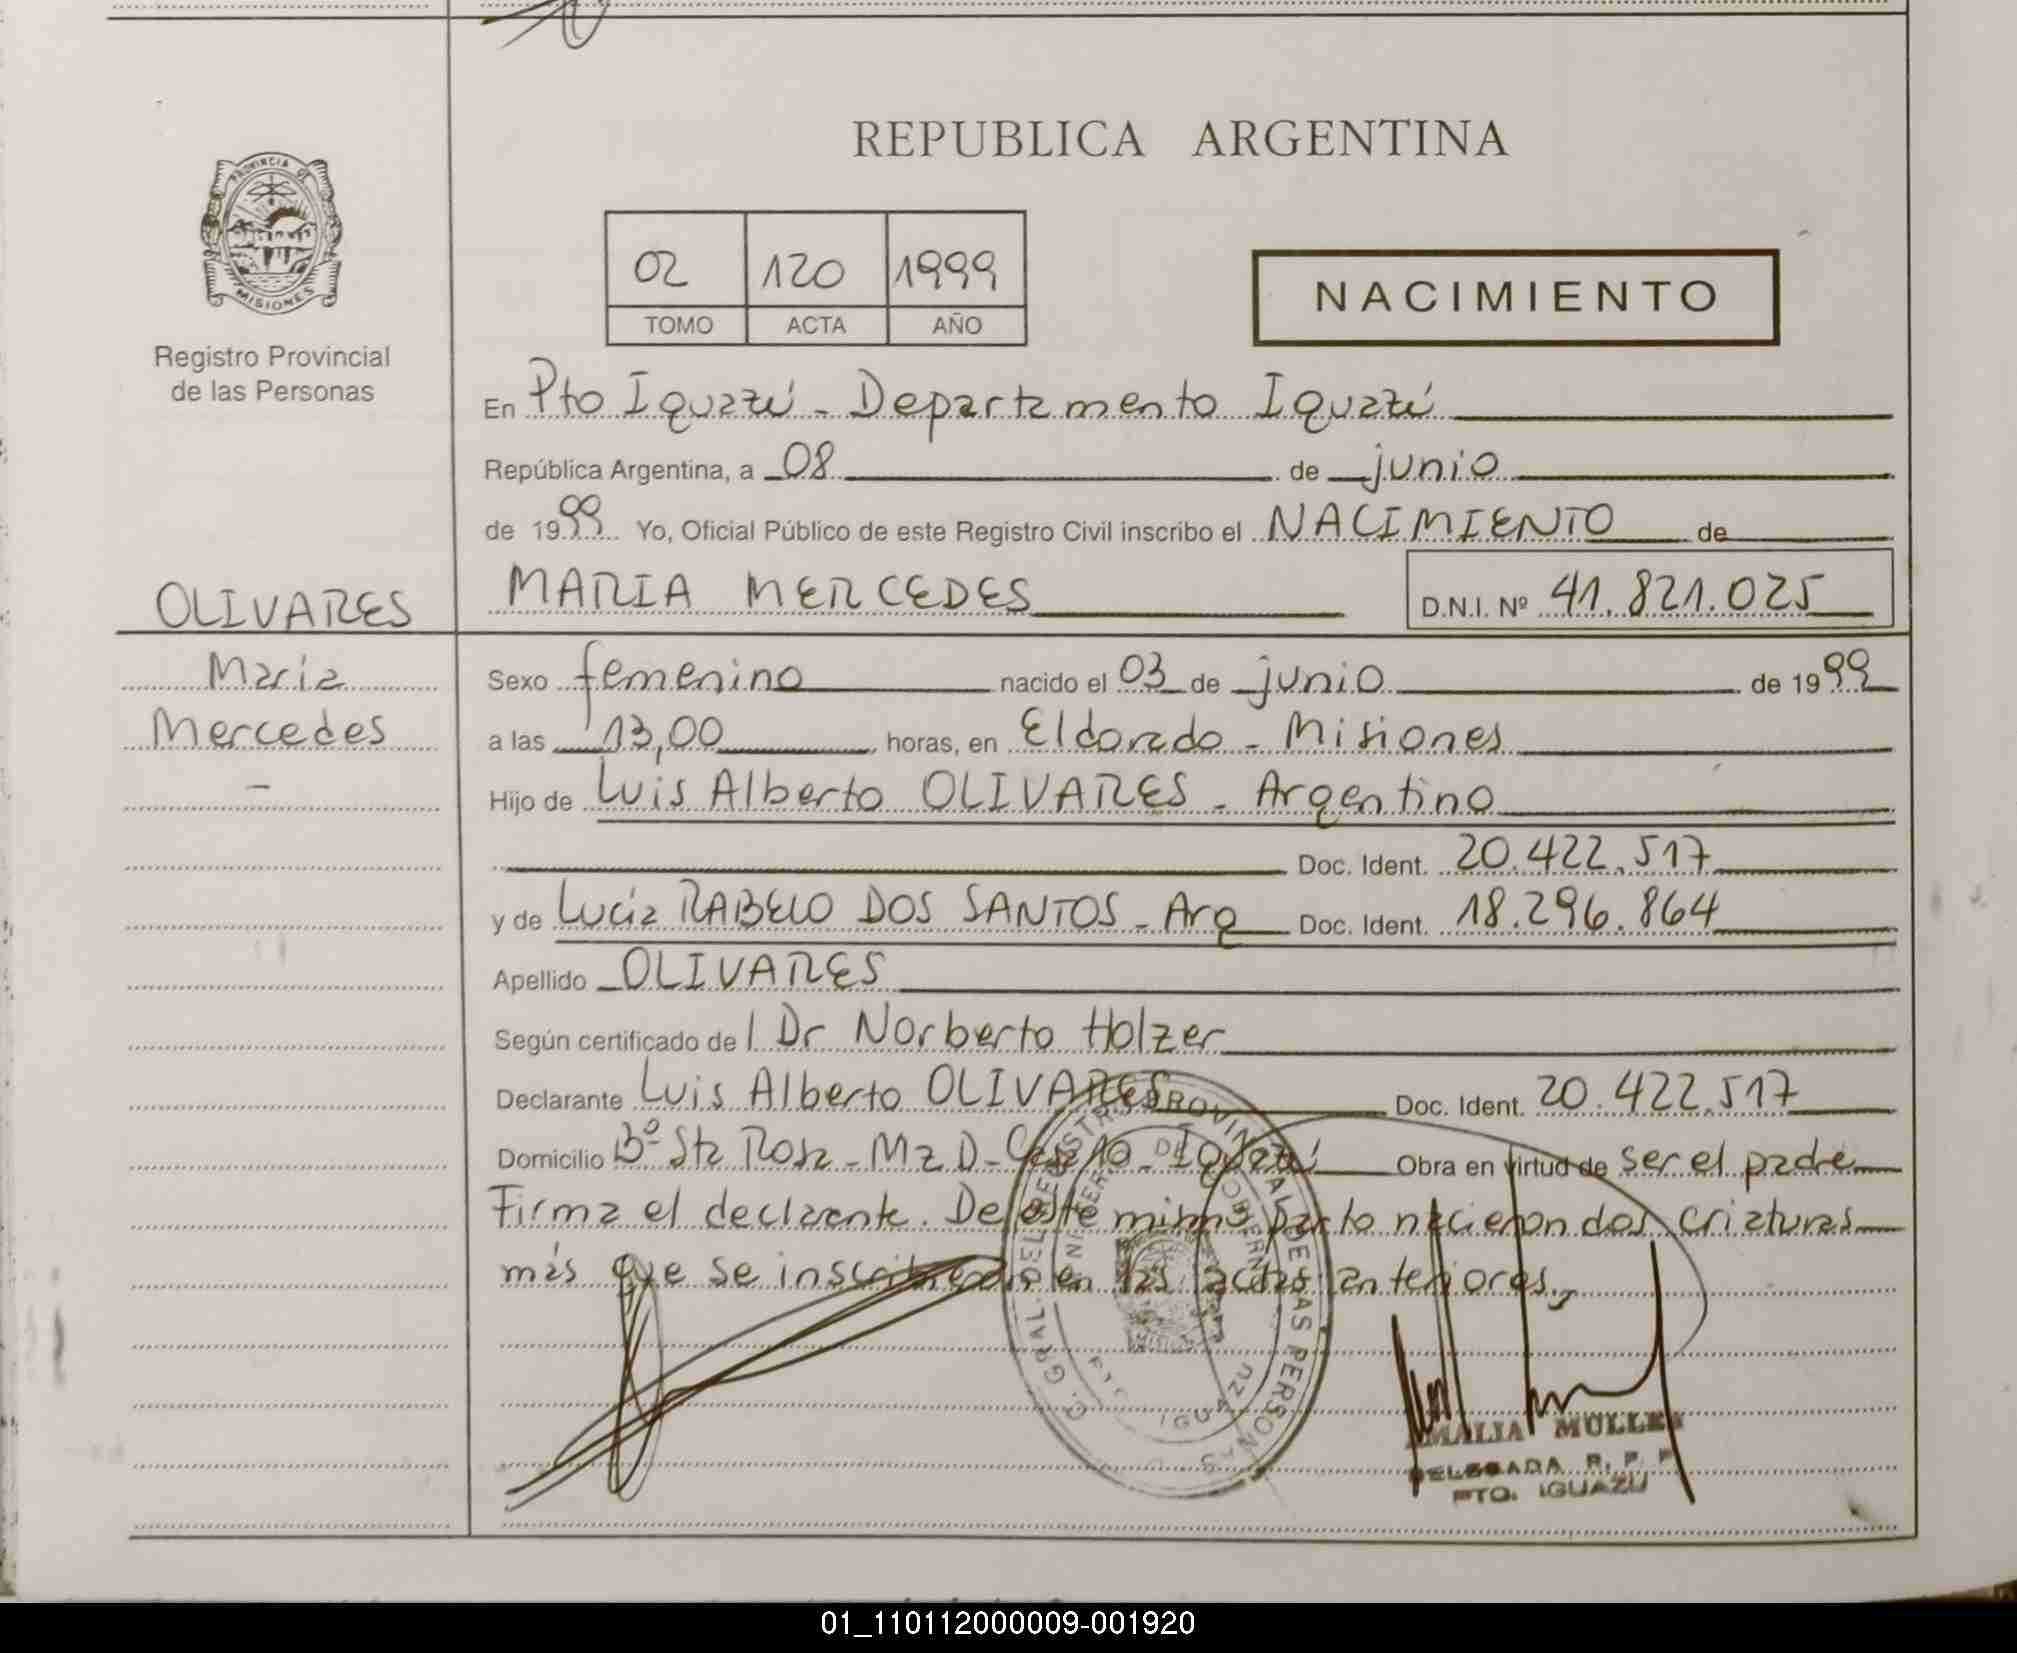 REPUBLICA ARGENTINA
PROVINCIA DE
MISIONES
Registro Provincial
de las Personas
02 120 1999
TOMO ACTA AÑO
NACIMIENTO
En Pto Iguazú - Departamento Iguazú
República Argentina, a 08 de junio
de 1999 Yo, Oficial Público de este Registro Civil inscribo el NACIMIENTO de
OLIVARES MARIA MERCEDES D.N.I. Nº 41.821.025
María
Mercedes
-
Sexo femenino nacido el 03 de junio de 1999
a las 13,00 horas, en Eldorado - Misiones
Hijo de Luis Alberto OLIVARES - Argentino
Doc. Ident. 20.422.517
y de Lucía RABELO DOS SANTOS - Arg Doc. Ident. 18.296.864
Apellido OLIVARES
Según certificado de l Dr Norberto Holzer
Declarante Luis Alberto OLIVARES Doc. Ident. 20.422.517
Domicilio Bº Sta Rosa - Mz D - Iguazú Obra en virtud de ser el padre
Firma el declarante. De este mismo parto nacieron dos criaturas
más que se inscribieron en las actas anteriores.
REGISTRO PROVINCIAL DE LAS PERSONAS
IGUAZU
AMALIA MULLER
DELEGADA R. P. P.
PTO. IGUAZU
01_110112000009-001920